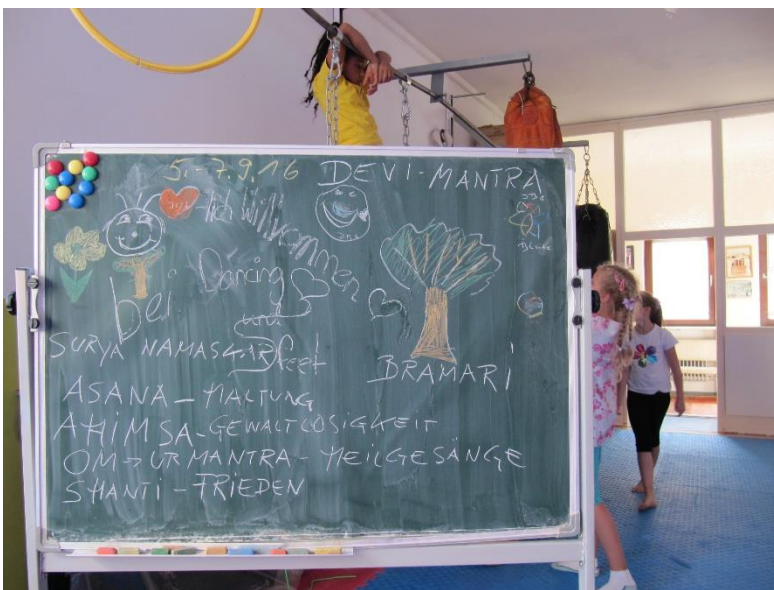 5.-7.9.16 DEVI-MANTRA
-lich Willkommen
bei Dancing
and
SURYA NAMASKAR feet
BRAMARI
ASANA - HALTUNG
AHIMSA - GEWALTLOSIGKEIT
OM → URMANTRA - HEILGESÄNGE
SHANTI - FRIEDEN